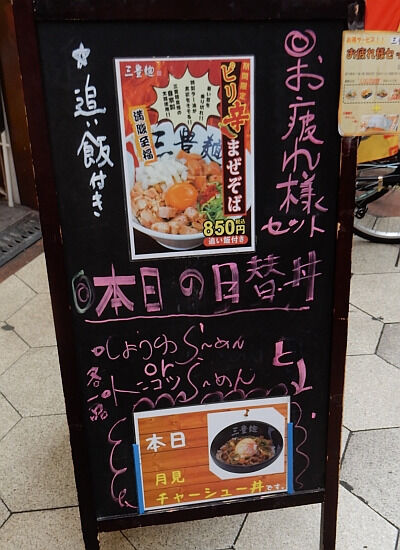 お疲れ様セット
☆追い飯付き
三豊麺
期間限定
ピリ辛まぜそば
満腹至福
三豊麺
850円
税込
追い飯付き
◎本日の日替丼
しょうゆらーめん
or
トンコツらーめん
各一品
と
本日
月見
チャーシュー丼です。
三豊麺